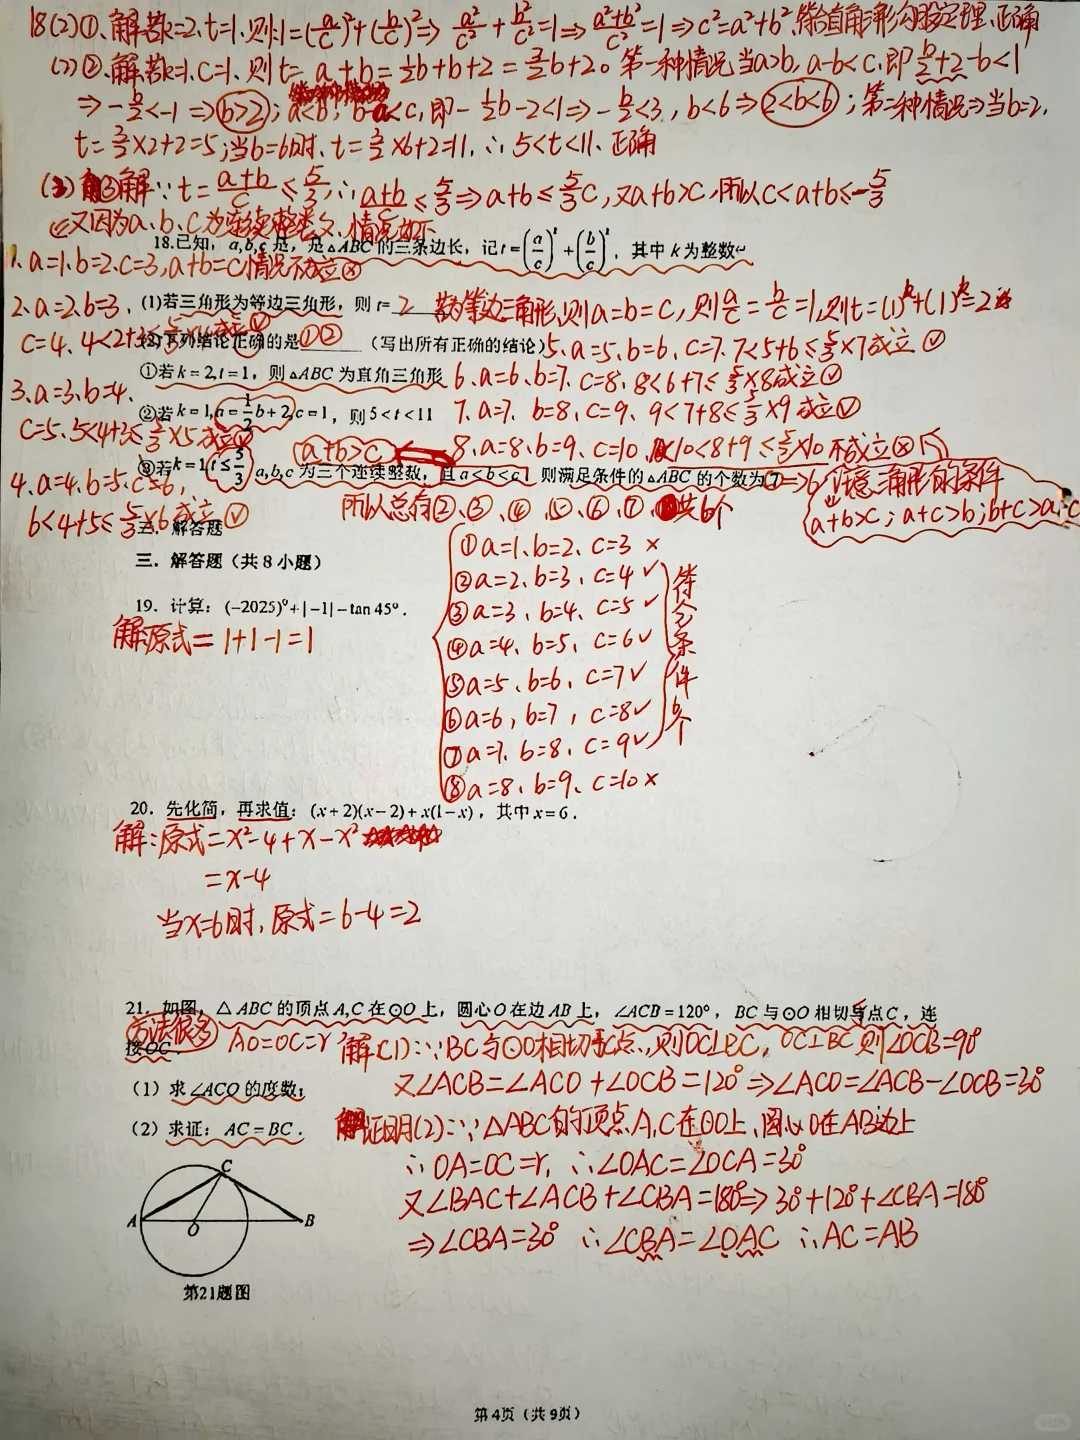 18(2)①、解若k=2、t=1、则:1=(a/c)²+(b/c)²⇒ a²/c² + b²/c² =1⇒ (a²+b²)/c² =1⇒c²=a²+b²,符合直角三角形勾股定理、正确
(2)②、解若k=1、C=1、则t= a+b = ½b+b+2 = 3/2b+2。第一种情况当a>b, a-b<c,即 b/2+2-b<1
⇒-b/2<-1⇒b>2;a<b,b-a<c,即-½b-2<1⇒-b/2<3,b<6⇒2<b<6;第二种情况⇒当b=2,
t=3/2×2+2=5;当b=6时、t=3/2×6+2=11,∴5<t<11、正确
③解∵t=(a+b)/c≤5/3,∴(a+b)/c≤5/3⇒a+b≤5/3c,又a+b>c,所以c<a+b≤5/3
又因为a、b、c为连续整数、情况如下
18.已知,a,b,c是,是△ABC的三条边长,记t=(a/c)ᵏ+(b/c)ᵏ,其中k为整数
1、a=1、b=2、c=3,a+b=c情况不成立ⓧ
(1)若三角形为等边三角形,则t= 2 为等边三角形,则a=b=c,则a/c=b/c=1,则t=(1)ᵏ+(1)ᵏ=2
2、a=2、b=3、
c=4、4<2+3≤5/3×4成立√
(2)下列结论正确的是①②(写出所有正确的结论)
5、a=5、b=6、c=7、7<5+6≤5/3×7成立√
①若k=2,t=1,则△ABC为直角三角形
6、a=6、b=7、c=8、8<6+7≤5/3×8成立√
3、a=3、b=4、
c=5、5<4+3≤5/3×5成立√
②若k=1,a=½b+2,c=1,则5<t<11
7、a=7、b=8、c=9、9<7+8≤5/3×9成立√
a+b>c
8、a=8、b=9、c=10、10<8+9≤5/3×10不成立ⓧ
③若k=1,t≤5/3,a,b,c为三个连续整数,且a<b<c,则满足条件的△ABC的个数为7⇒6个
注意三角形的条件
a+b>c;a+c>b;b+c>a
4、a=4、b=5、c=6,
6<4+5≤5/3×6成立√
所以总有②、③、④、⑤、⑥、⑦、共6个
三.解答题
三.解答题(共8小题)
①a=1、b=2、c=3 ×
②a=2、b=3、c=4 √
③a=3、b=4、c=5 √
④a=4、b=5、c=6 √
⑤a=5、b=6、c=7 √
⑥a=6,b=7,c=8 √
⑦a=7、b=8、c=9 √
⑧a=8、b=9、c=10 ×
符合条件6个
19.计算:(−2025)⁰+|−1|−tan45°.
解:原式=1+1-1=1
20.先化简,再求值:(x+2)(x−2)+x(1−x),其中x=6.
解:原式=x²-4+x-x²
=x-4
当x=6时,原式=6-4=2
21.如图,△ABC的顶点A,C在⊙O上,圆心O在边AB上,∠ACB=120°,BC与⊙O相切于点C,连
接OC.
方法很多
AO=OC=r
解(1)∵BC与⊙O相切于C点,则OC⊥BC,OC⊥BC则∠OCB=90°
(1)求∠ACO的度数;
又∠ACB=∠ACO+∠OCB=120°⇒∠ACO=∠ACB-∠OCB=30°
(2)求证:AC=BC.
证明(2)∵△ABC的顶点A,C在⊙O上、圆心O在AB边上
∴OA=OC=r,∴∠OAC=∠OCA=30°
又∠BAC+∠ACB+∠CBA=180°⇒30°+120°+∠CBA=180°
⇒∠CBA=30° ∴∠CBA=∠OAC ∴AC=AB
C
A
O
B
第21题图
第4页(共9页)